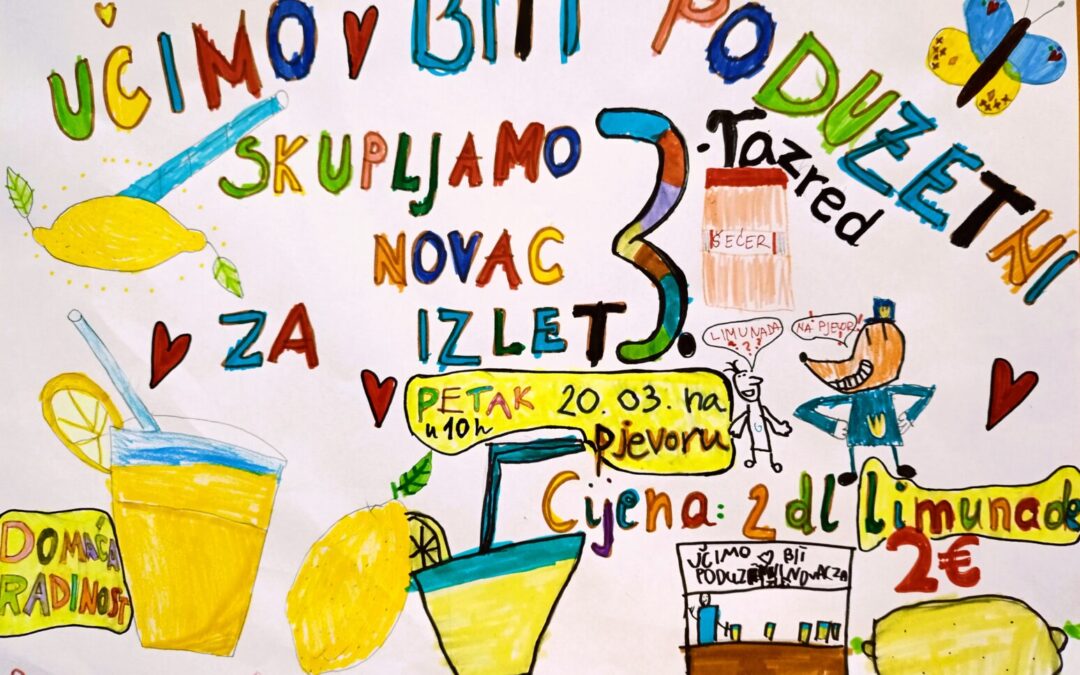 UČIMO BITI PODUZETNI
SKUPLJAMO
NOVAC
ZA IZLET
3. razred
ŠEĆER
LIMUNADA
???
NA PJEVOR!
PETAK 20. 03. na
u 10h pjevoru
Cijena: 2 dl limunade
2€
DOMAĆA
RADINOST
UČIMO BITI